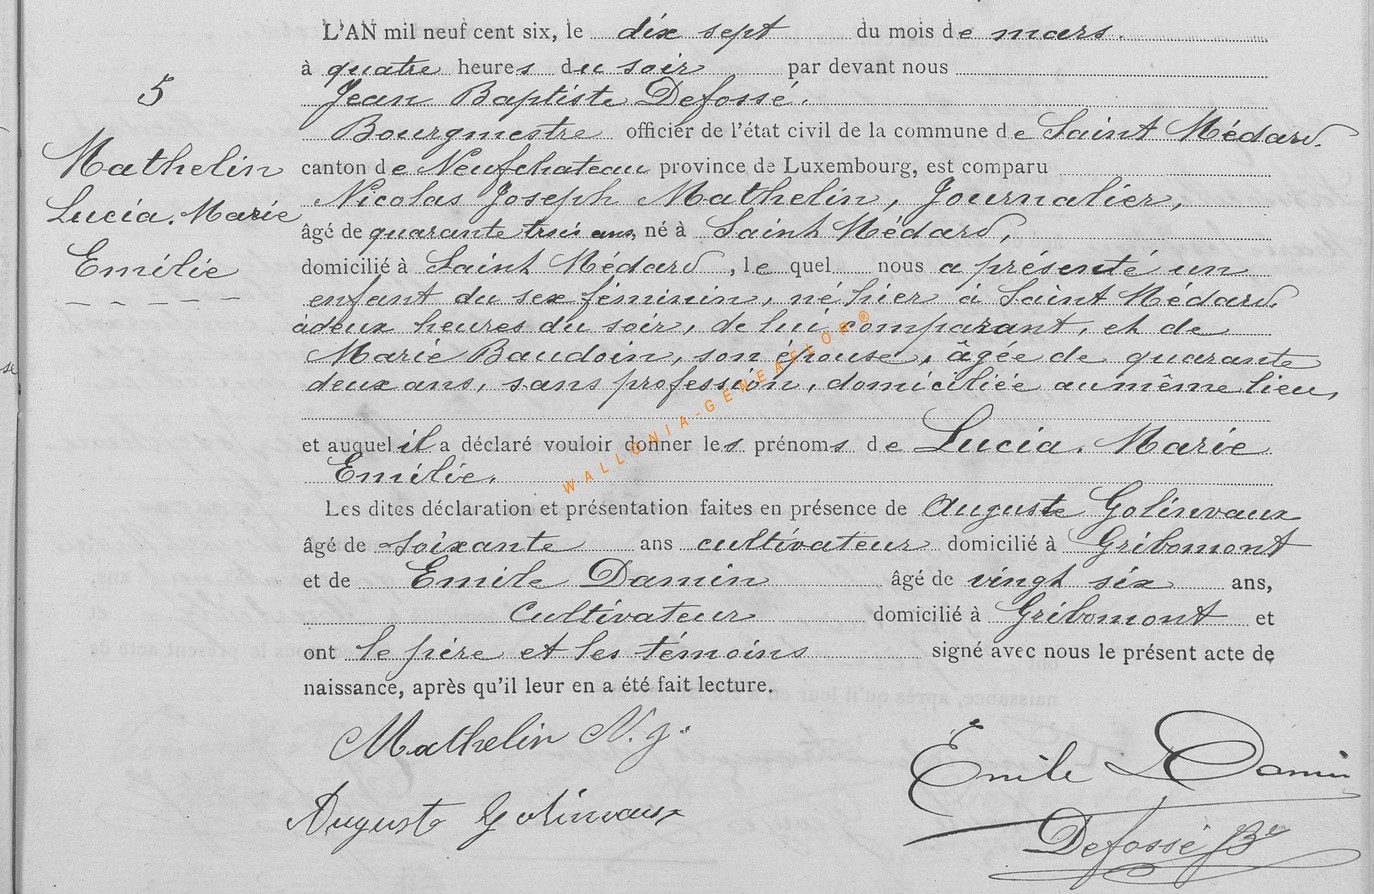 L'AN mil neuf cent six, le dix sept du mois de mars.
à quatre heures du soir par devant nous
5
Jean Baptiste Defossé.
Bourgmestre officier de l'état civil de la commune de Saint Médard.
Mathelin
canton de Neufchateau province de Luxembourg, est comparu
Lucia. Marie
Nicolas Joseph Mathelin, Journalier,
âgé de quarante trois ans, né à Saint Médard,
Emélie
domicilié à Saint Médard, le quel nous a présenté un
enfant du sex féminin, né hier à Saint Médard.
à deux heures du soir, de lui comparant, et de
Marie Baudoin, son épouse, âgée de quarante
deux ans, sans profession, domiciliée au même lieu,
et auquel il a déclaré vouloir donner les prénoms de Lucia. Marie
Emélie.
WALLONIA-GENEAFLOR®
Les dites déclaration et présentation faites en présence de Auguste Golinvaux
âgé de soixante ans cultivateur domicilié à Gribomont
et de Emile Damin âgé de vingt six ans,
Cultivateur domicilié à Gribomont et
ont le père et les témoins signé avec nous le présent acte de
naissance, après qu'il leur en a été fait lecture.
Mathelin N. j.
Emile Damin
Auguste Golinvaux
Defossé JBte